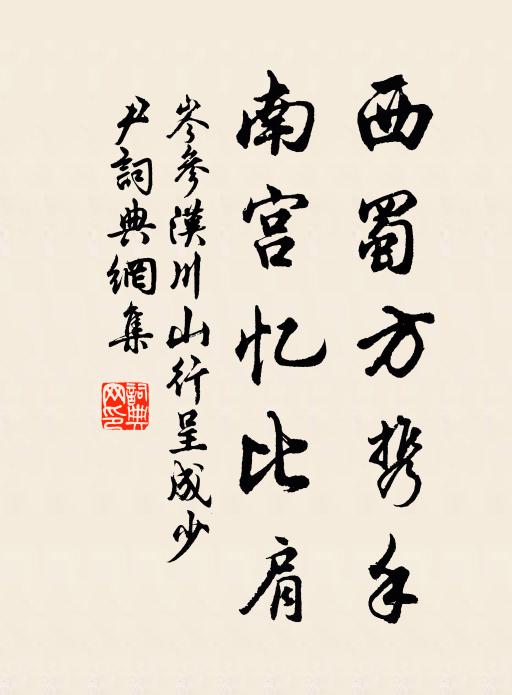 西蜀方携手
南宫忆比肩
岑參漢川山行呈成少
尹詞典網集
詞典
网印